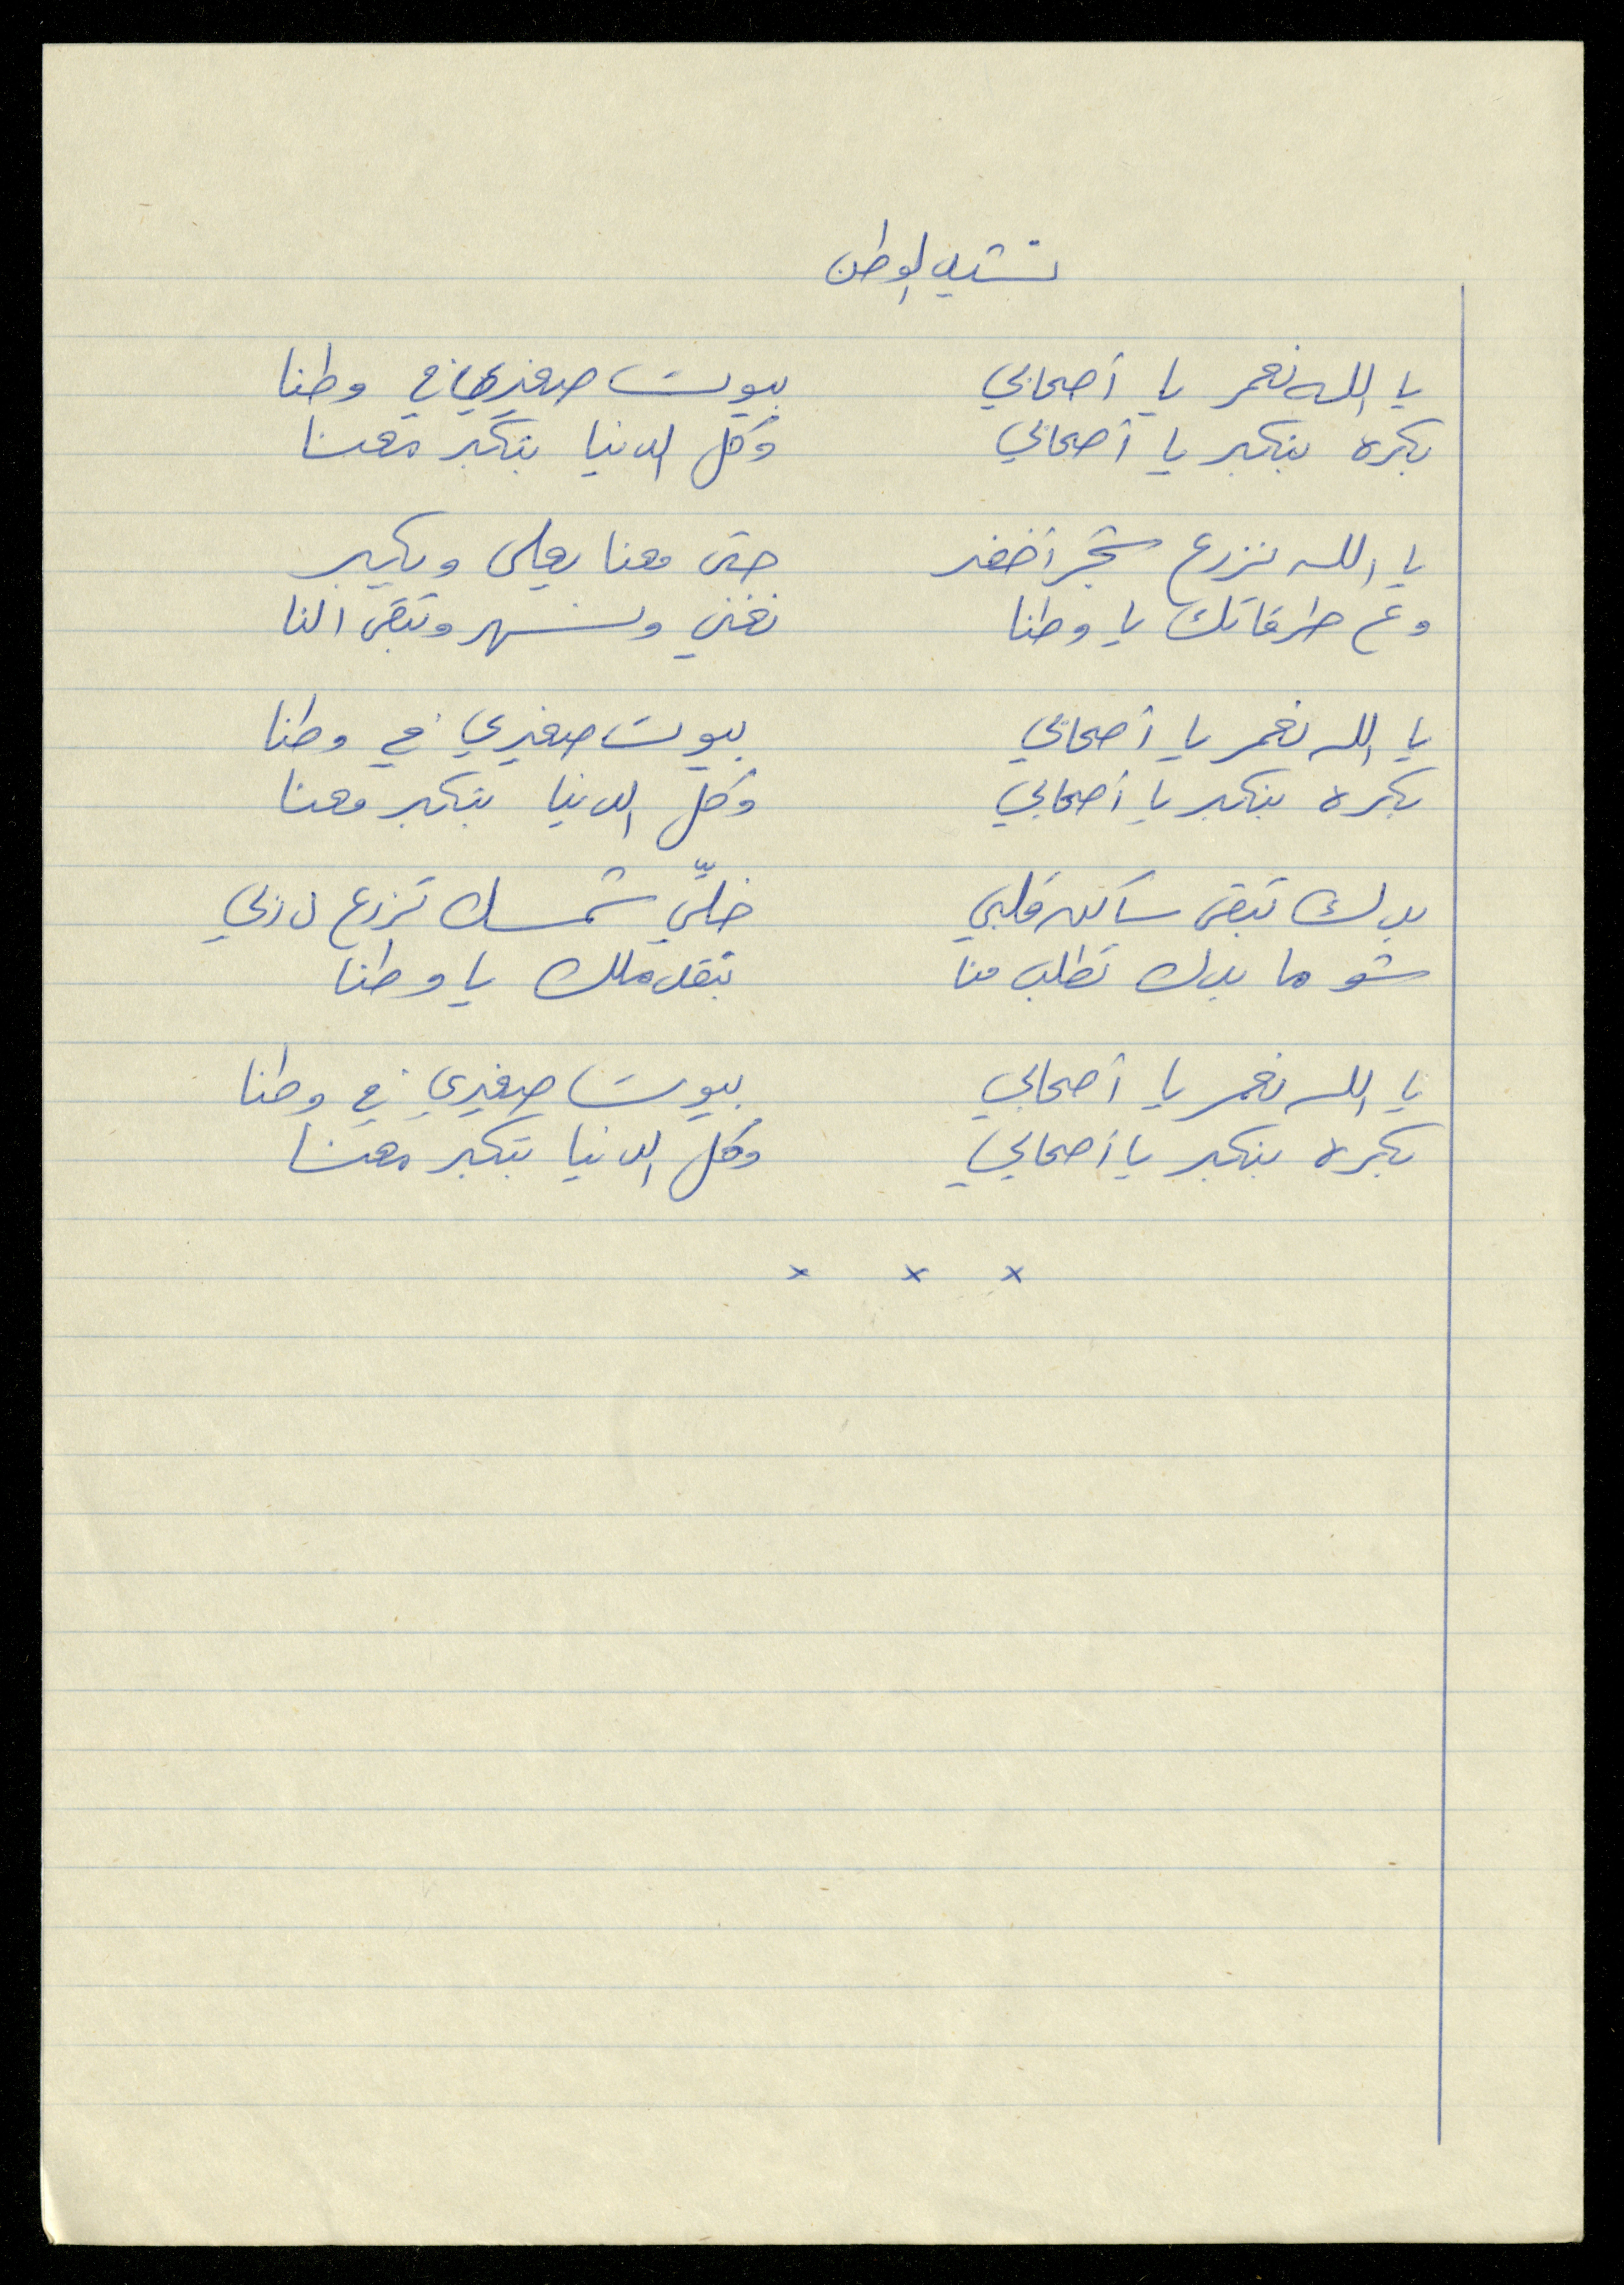 نشيد الوطن
يا الله نعمر يا أصحابي بيوت صغيري في وطنا
بكره بنكبر يا أصحابي وكل الدنيا بتكبر معنا
يا الله نزرع شجر أخضر حتى معنا يعلى ويكبر
وع طرقاتك يا وطنا نغني ونسهر وتبقى النا
يا الله نعمر يا أصحابي بيوت صغيري في وطنا
بكره بنكبر يا أصحابي وكل الدنيا بتكبر معنا
بدك تبقى ساكن قلبي خلّي شمسك تزرع دربي
شو ما بدك تطلب منا يا وطنا
يا الله نعمر يا أصحابي بيوت صغيري في وطنا
بكره بنكبر يا أصحابي وكل الدنيا بتكبر معنا
× × ×